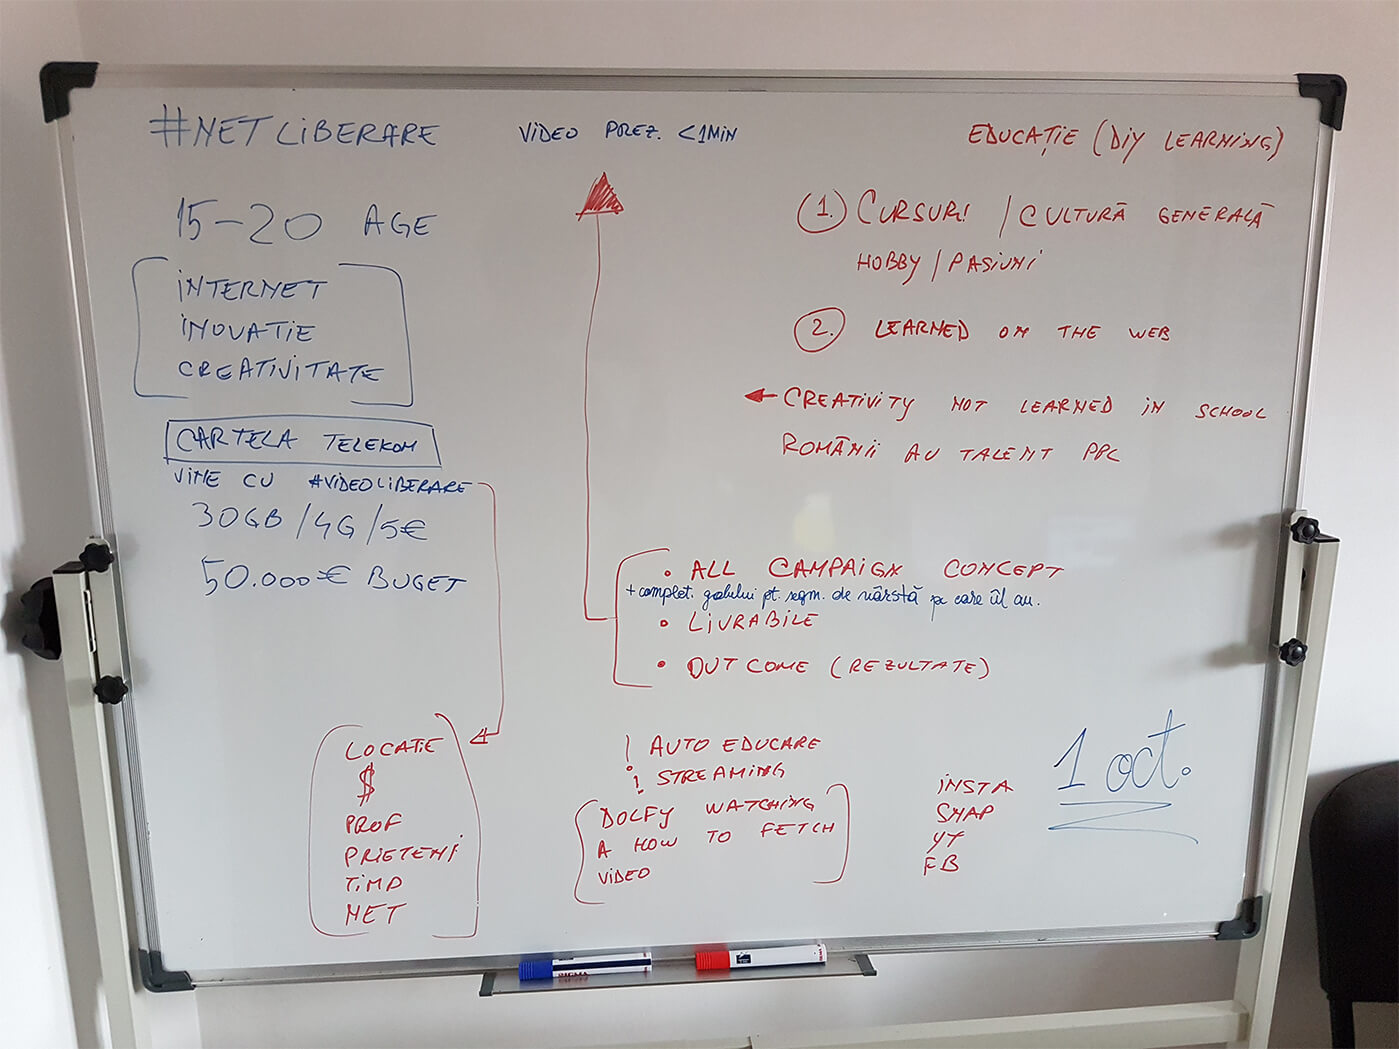 #NETLIBERARE
15-20 AGE
INTERNET
INOVATIE
CREATIVITATE
CARTELA TELEKOM
VINE CU #VIDEOLIBERARE
30GB/4G/5€
50.000€ BUGET
LOCATIE
$
PROF
PRIETENI
TIMP
NET
VIDEO PREZ. <1MIN
• ALL CAMPAIGN CONCEPT
+ complet. golului pt. segm. de vârstă pe care îl au.
• LIVRABILE
• OUTCOME (REZULTATE)
! AUTO EDUCARE
! STREAMING
DOLFY WATCHING
A HOW TO FETCH
VIDEO
EDUCAȚIE (DIY LEARNING)
1. CURSURI / CULTURĂ GENERALĂ
HOBBY / PASIUNI
2. LEARNED ON THE WEB
CREATIVITY NOT LEARNED IN SCHOOL
ROMÂNII AU TALENT PPL
INSTA
SNAP
YT
FB
1 oct.
SIGMA